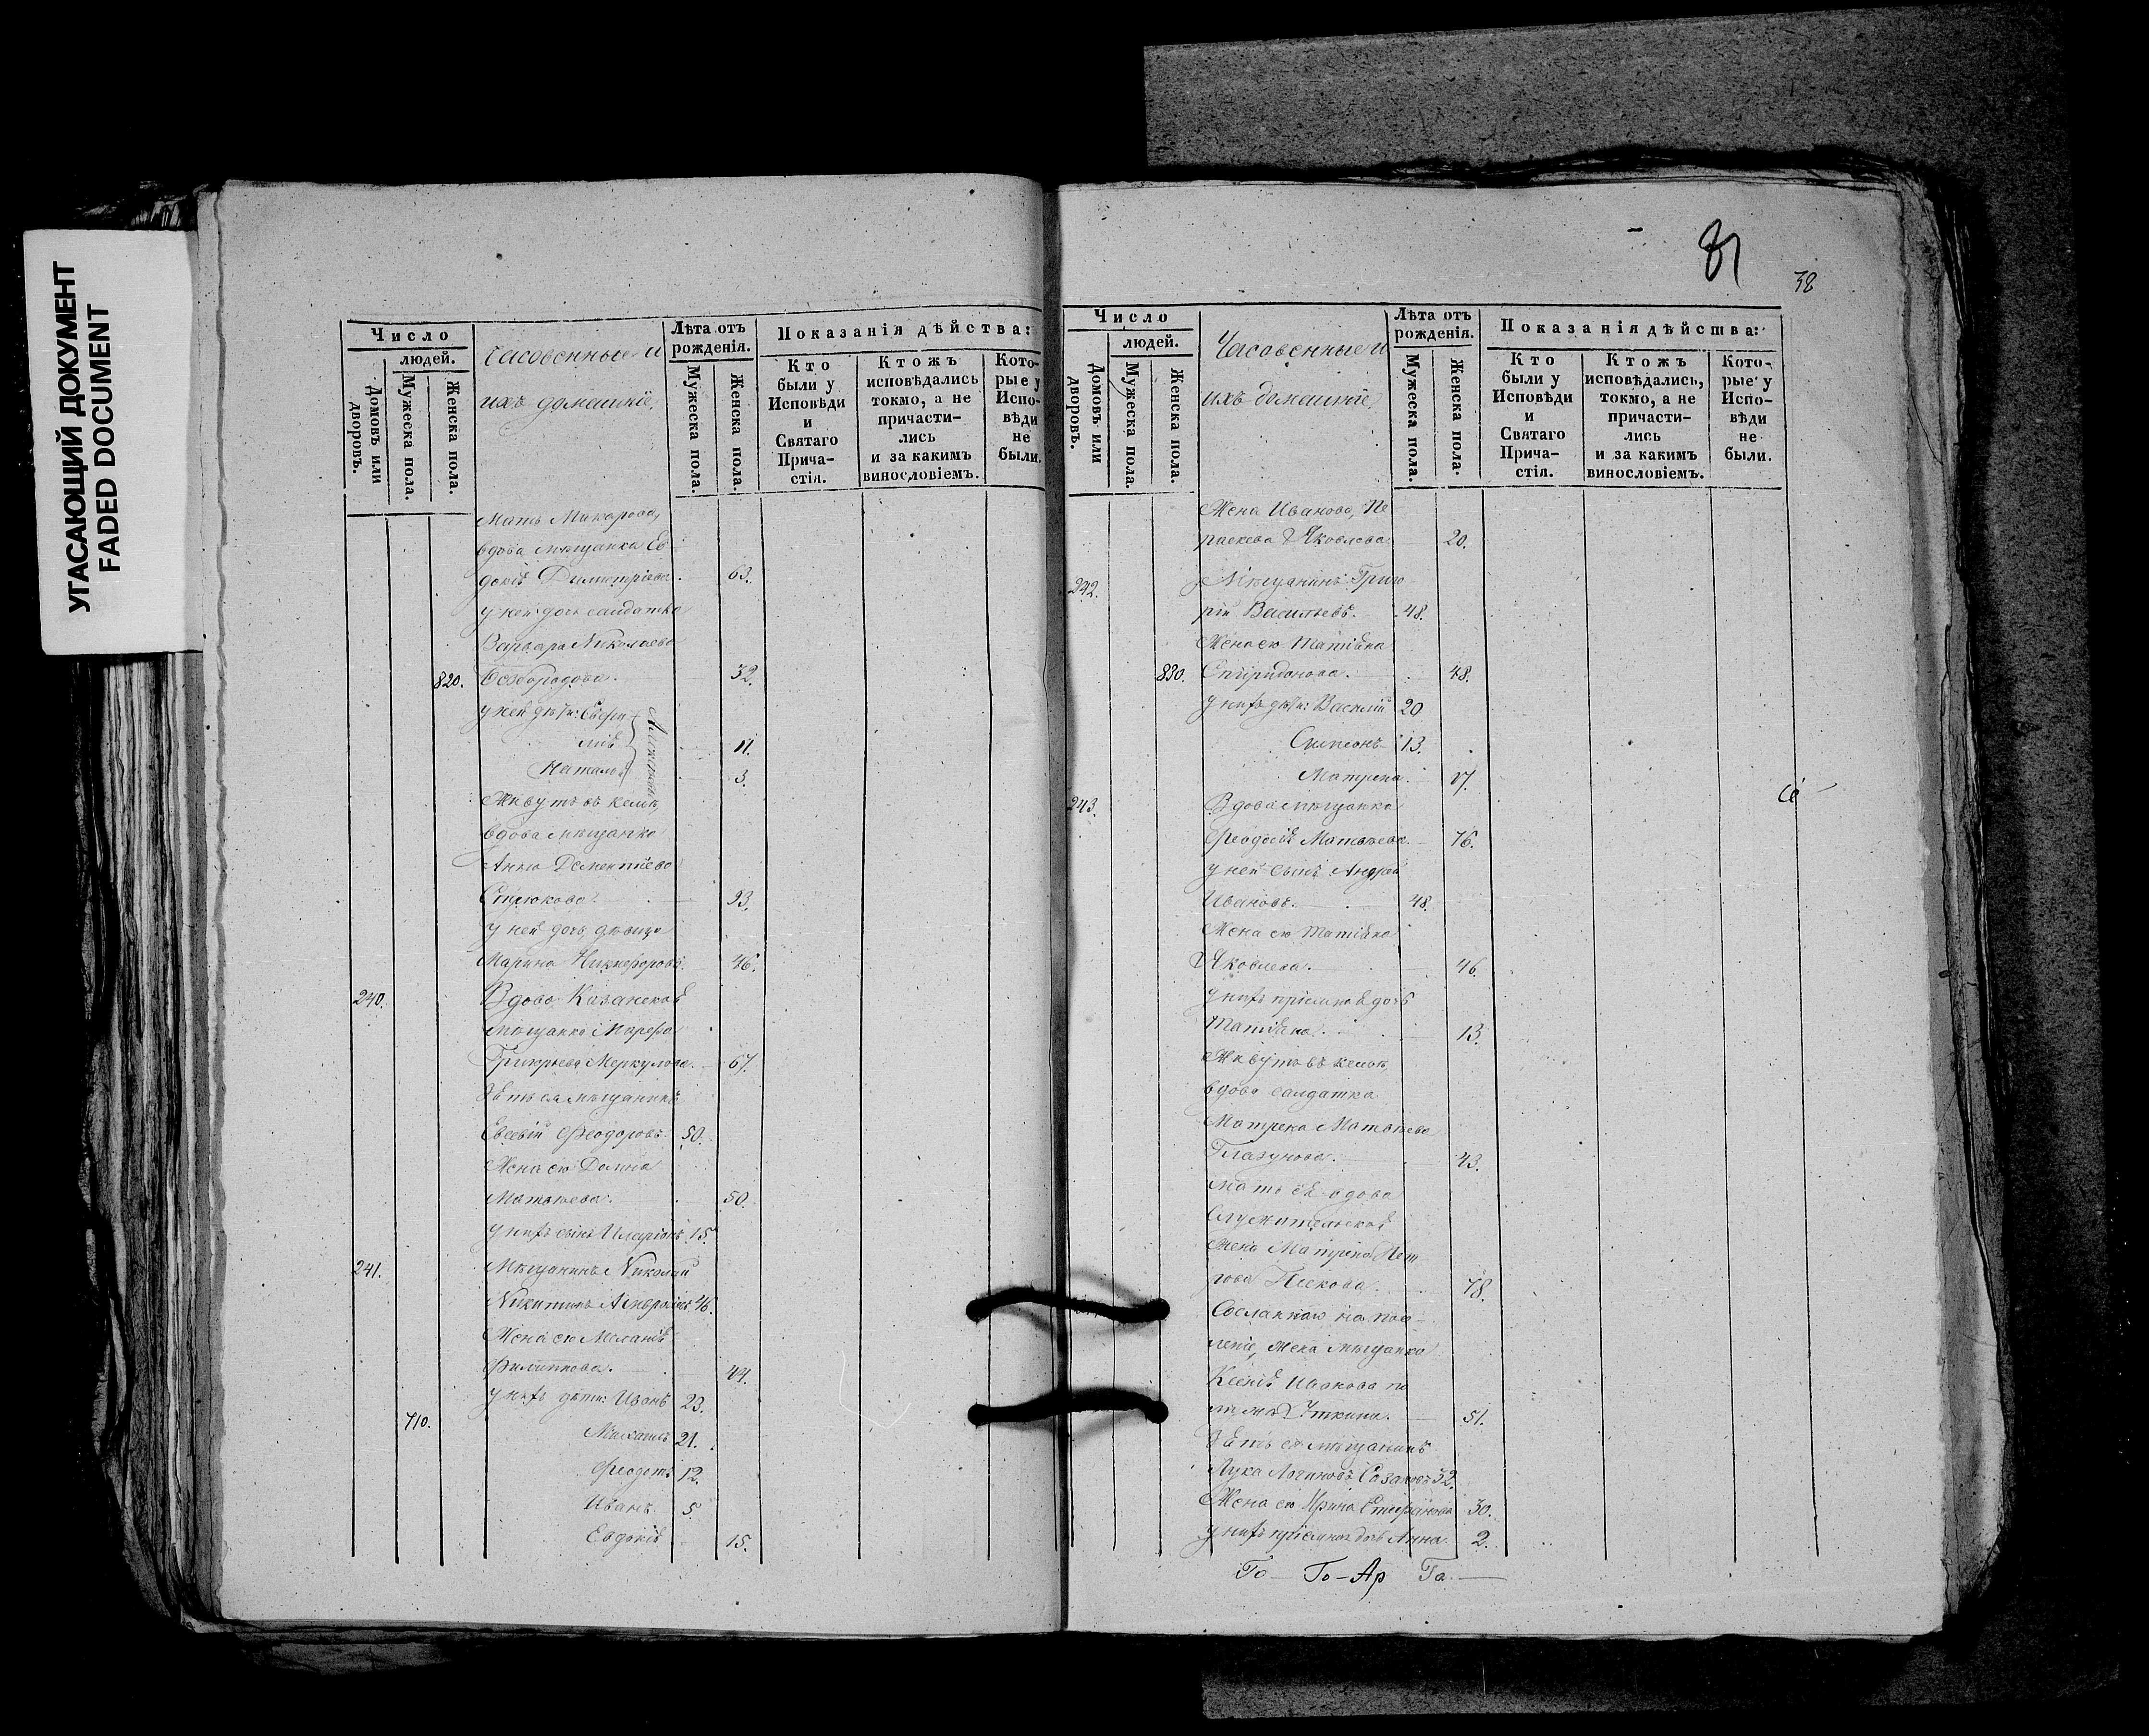 УГАСАЮЩИЙ ДОКУМЕНТ
FADED DOCUMENT
Число
людей.
Домовъ или дворовъ.
Мужеска пола.
Женска пола.
Часовенные и
ихъ домашніе,
Лѣта отъ рожденія.
Мужеска пола.
Женска пола.
Показанія дѣйства:
Кто были у Исповѣди и Святаго Прича-стія.
Ктожъ исповѣдались токмо, а не причасти-лись и за какимъ винословіемъ.
Кото-рые у Испо-вѣди не были.
Мать Макарова,
вдова мѣщанка Ев
докія Димитріева. 63.
у ней дочь салдатка
Варвара Николаева
820. Безбородова. 32.
у ней дѣти: Евфи
мія 11.
Наталья 3.
Живутъ въ кельѣ,
вдова мѣщанка
Анна Дементіева
93.
у ней дочь, дѣвица
Марина Никифорова. 46.
240. Вдова Казанская
мѣщанка Марфа
Григорьева Меркулова. 67.
Зять ея мѣщанинъ
Евсевій Феодоровъ. 50.
Жена его Домна
Матвѣева. 50.
у нихъ сынъ Иларіонъ 15.
241. Мѣщанинъ Николай
Никитинъ 46.
Жена его Меланія
Филиппова. 44.
у нихъ дѣти: Иванъ 23.
710. Михаилъ 21.
Феодотъ 12.
Иванъ. 5
Евдокія 15.
81
38
Число
людей.
Домовъ или дворовъ.
Мужеска пола.
Женска пола.
Часовенные и
ихъ домашніе,
Лѣта отъ рожденія.
Мужеска пола.
Женска пола.
Показанія дѣйства:
Кто были у Исповѣди и Святаго Прича-стія.
Ктожъ исповѣдались, токмо, а не причасти-лись и за какимъ винословіемъ.
Кото-рые у Испо-вѣди не были.
Жена Иванова, Па
раскева Яковлева 20.
242. Мѣщанинъ Григо
рій Васильевъ. 48.
Жена его Татіана
830. Спиридонова. 48.
у нихъ дѣти: Василій 20
Симеонъ 13.
Матрена. 17.
243. Вдова мѣщанка
Феодосія Матвѣева. 76.
у ней сынъ Андрей
Ивановъ. 48.
Жена его Татіана
Яковлева. 46.
у нихъ пріемная дочь
Татіана. 13.
Живутъ въ кельѣ,
вдова салдатка
Матрена Матвѣева
Глазунова. 43.
Мать ея вдова
служительская
жена Матрена Пет
рова Пескова. 78.
Сосланнаго на посе
леніе, жена мѣщанка
Ксенія Иванова по
Уткина. 51.
Зять ея мѣщанинъ
Лука Логиновъ 32.
Жена его Ирина Стефанова 30.
у нихъ пріемная дочь Анна. 2.
То — То — Ар Та. —